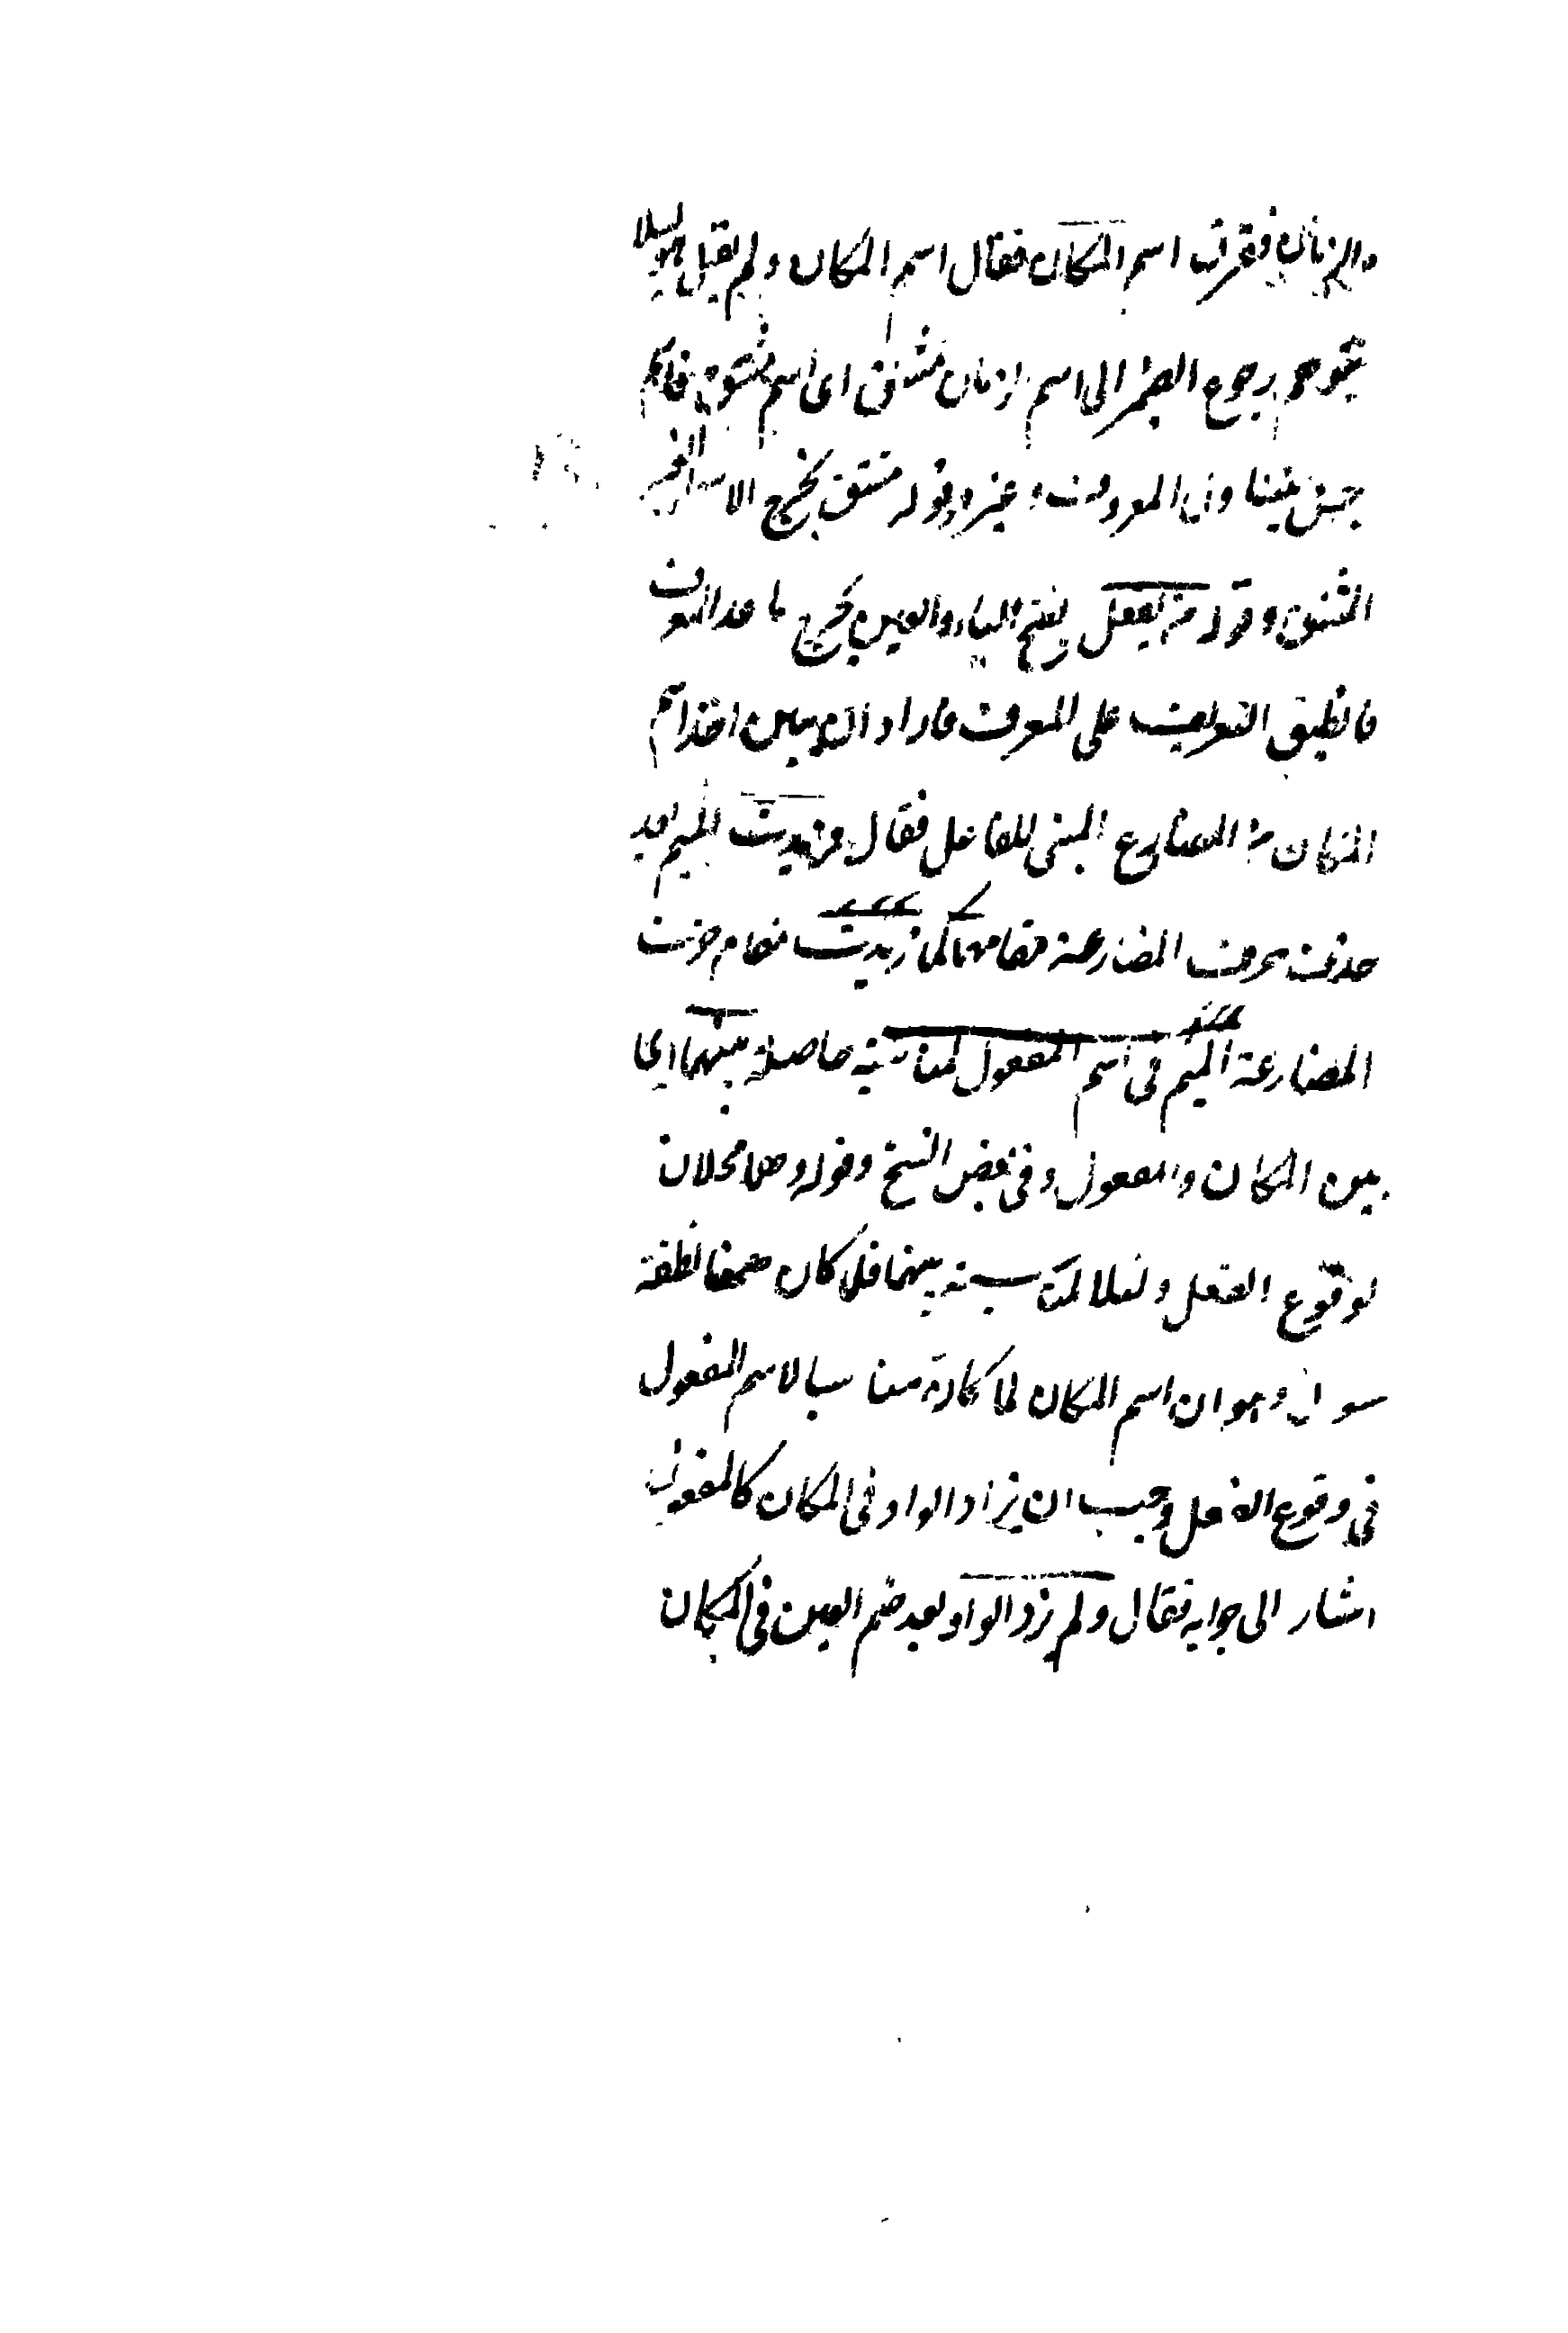 والزمان فعرف اسم المكان فقال اسم المكان ولم يقل هو لئلا
يتوهم رجوع الضمير الى اسم الزمان مشتق اى اسم مشتق فاسم
جنس يتناول المعروف وغيره وقوله مشتق يخرج الاسم الغير
المشتق وقوله من يفعل بفتح الياء والعين يخرج ما عدا المعرف
فانطبق التعريف على المعرف فاراد ان يبين اخذ اسم
المكان من المضارع المبنى للفاعل فقال فزيدت الميم بعد
حذف حرف المضارعة مقامها كما زيدت مقام حرف
المضارعة الميم فى اسم المفعول لمناسبة حاصلة بينهما اى
بين المكان والمفعول وفى بعض النسخ وقوله وهما محلان
لوقوع الفعل المناسبة بينهما فلما كان
سوال وهو ان اسم المكان لما كان مناسبا لاسم المفعول
فى وقوع الفعل وجب ان يزاد الواو فى المكان كالمفعول
اشار الى جوابه فقال ولم يزد الواو بعد ضم العين فى المكان